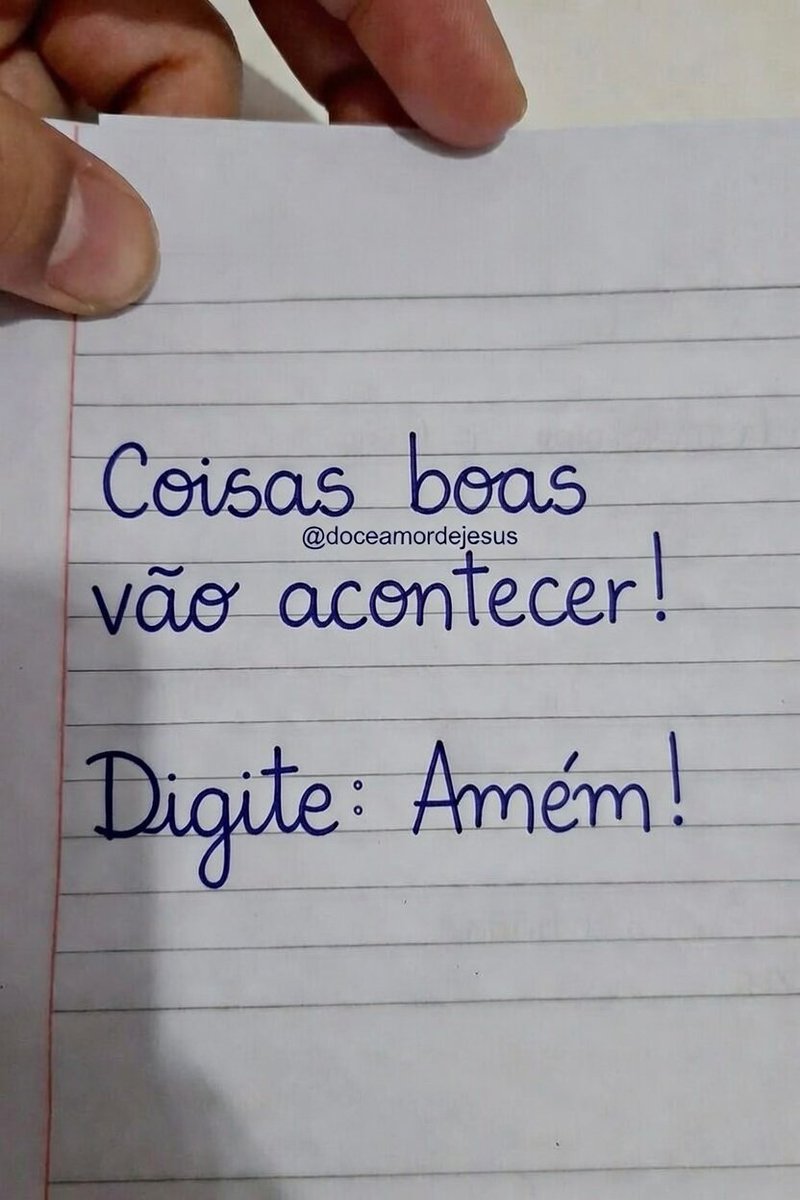 Coisas boas
@doceamordejesus
vão acontecer!
Digite: Amém!